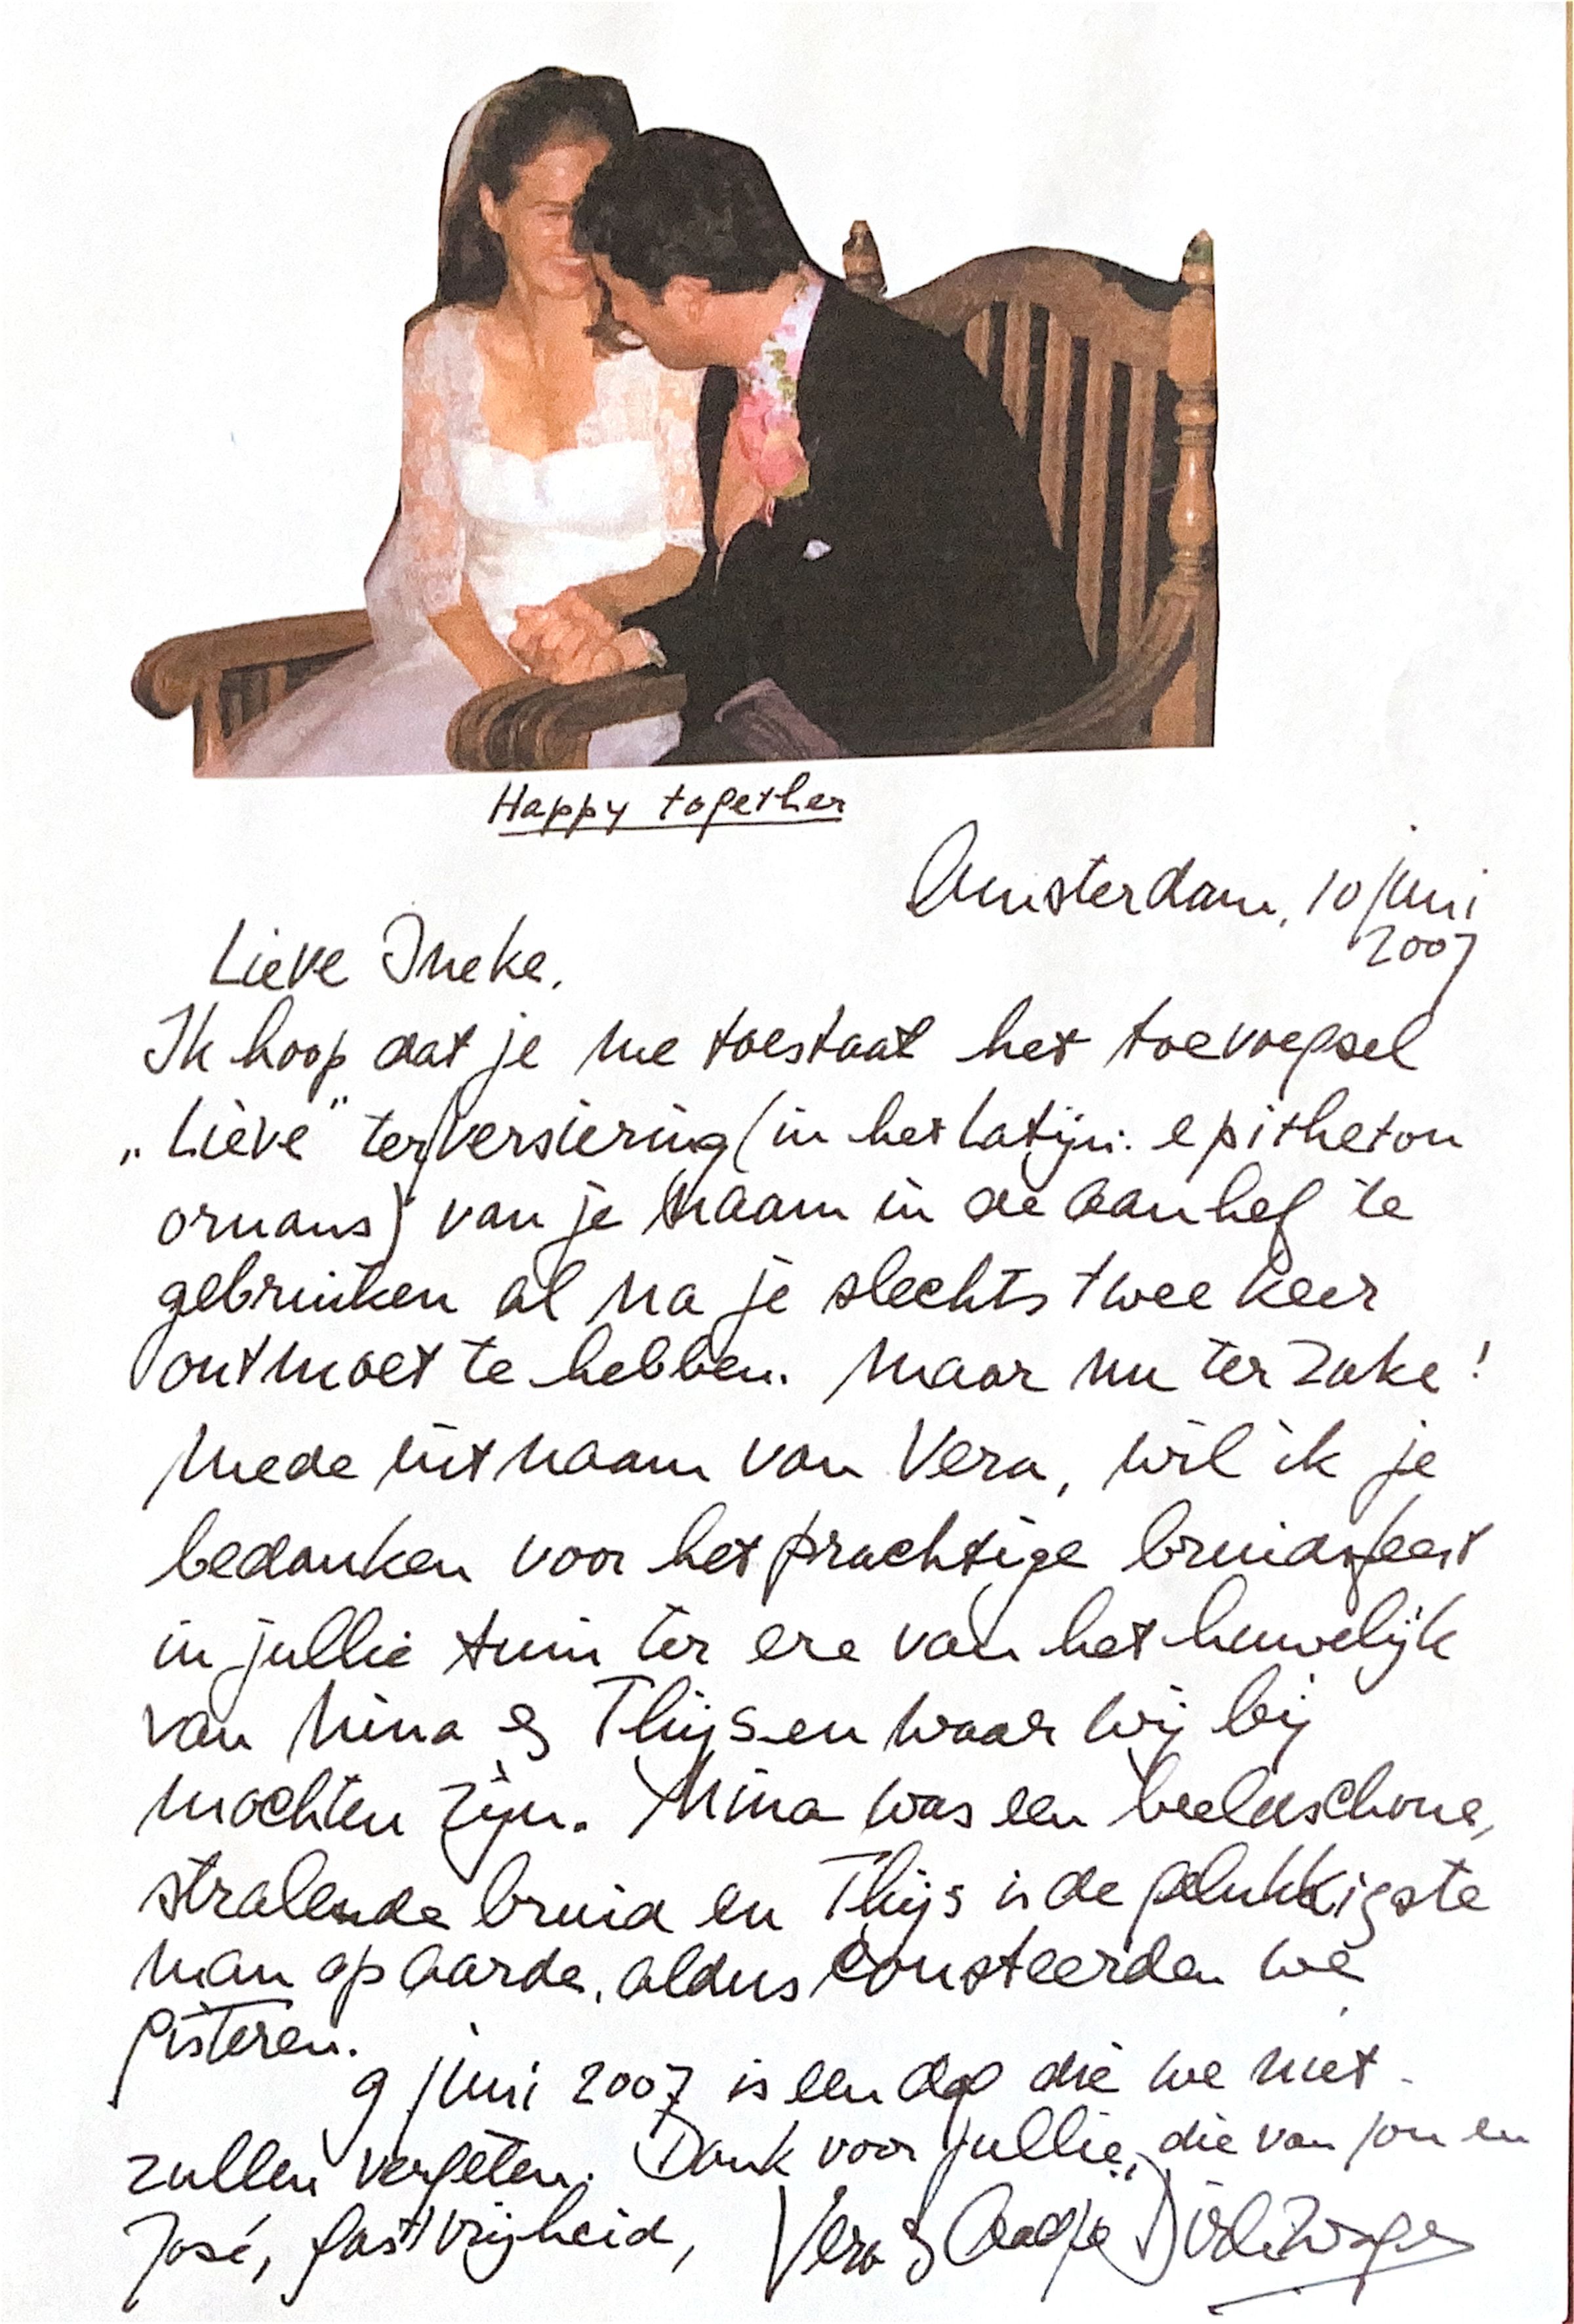 Happy together
Amsterdam, 10 juni
2007
Lieve Ineke,
Ik hoop dat je me toestaat het toevoegsel
„Lieve" ter versiering (in het Latijn: epitheton
ornans) van je naam in de aanhef te
gebruiken al na je slechts twee keer
ontmoet te hebben. Maar nu ter zake!
Mede uit naam van Vera, wil ik je
bedanken voor het prachtige bruidsfeest
in jullie tuin ter ere van het huwelijk
van Nina & Thijs en waar wij bij
mochten zijn. Nina was een beeldschone,
stralende bruid en Thijs is de gelukkigste
man op aarde, aldus consteerden we
gisteren.
9 juni 2007 is een dag die we niet
zullen vergeten. Dank voor jullie, die van jou en
José, gastvrijheid, Vera &